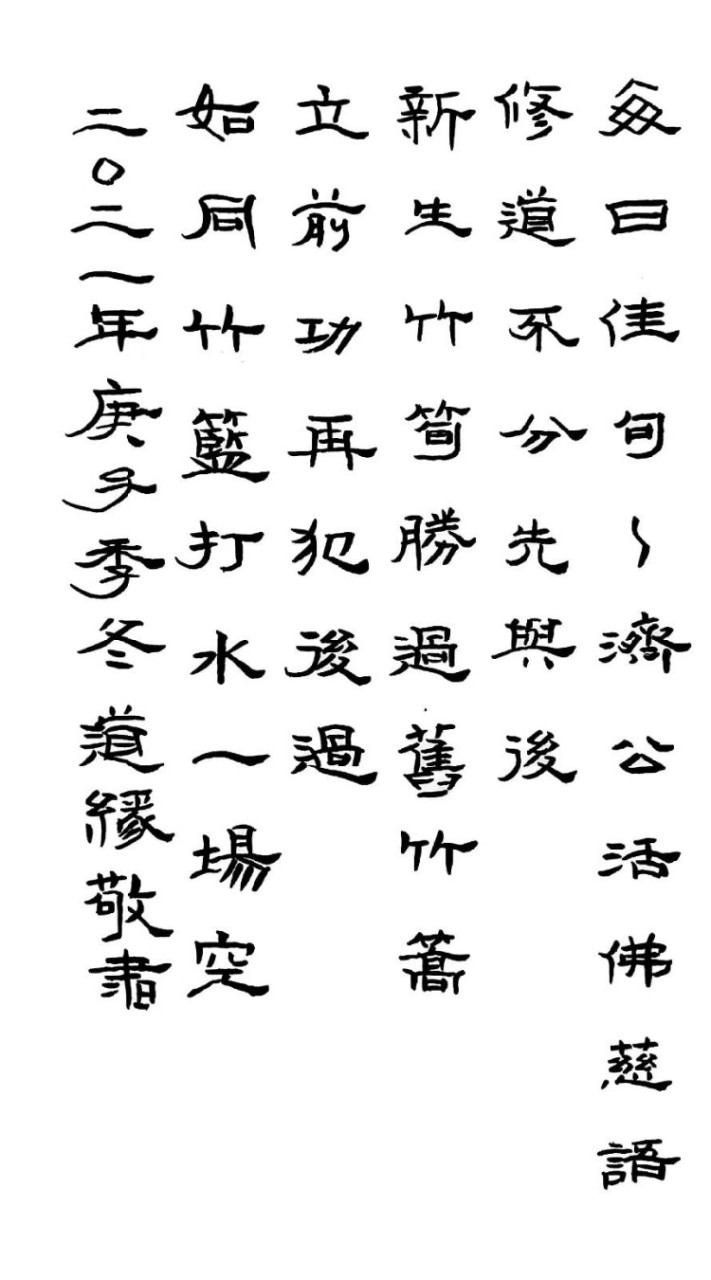 每日佳句～濟公活佛慈語
修道不分先與後
新生竹筍勝過舊竹篙
立前功再犯後過
如同竹籃打水一場空
二〇二一年庚子季冬道緣敬書